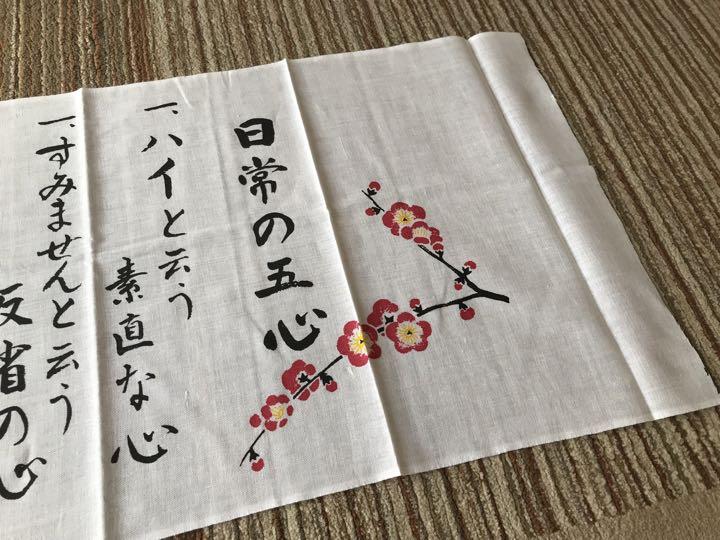 日常の五心
一、ハイと云う
素直な心
一、すみませんと云う
反省の心